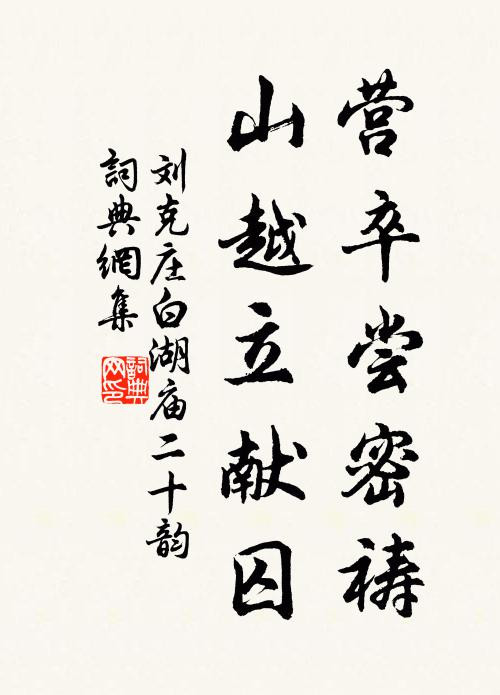 营卒尝密祷
山越立献囚
刘克庄白湖庙二十韵
詞典網集
詞典
网印